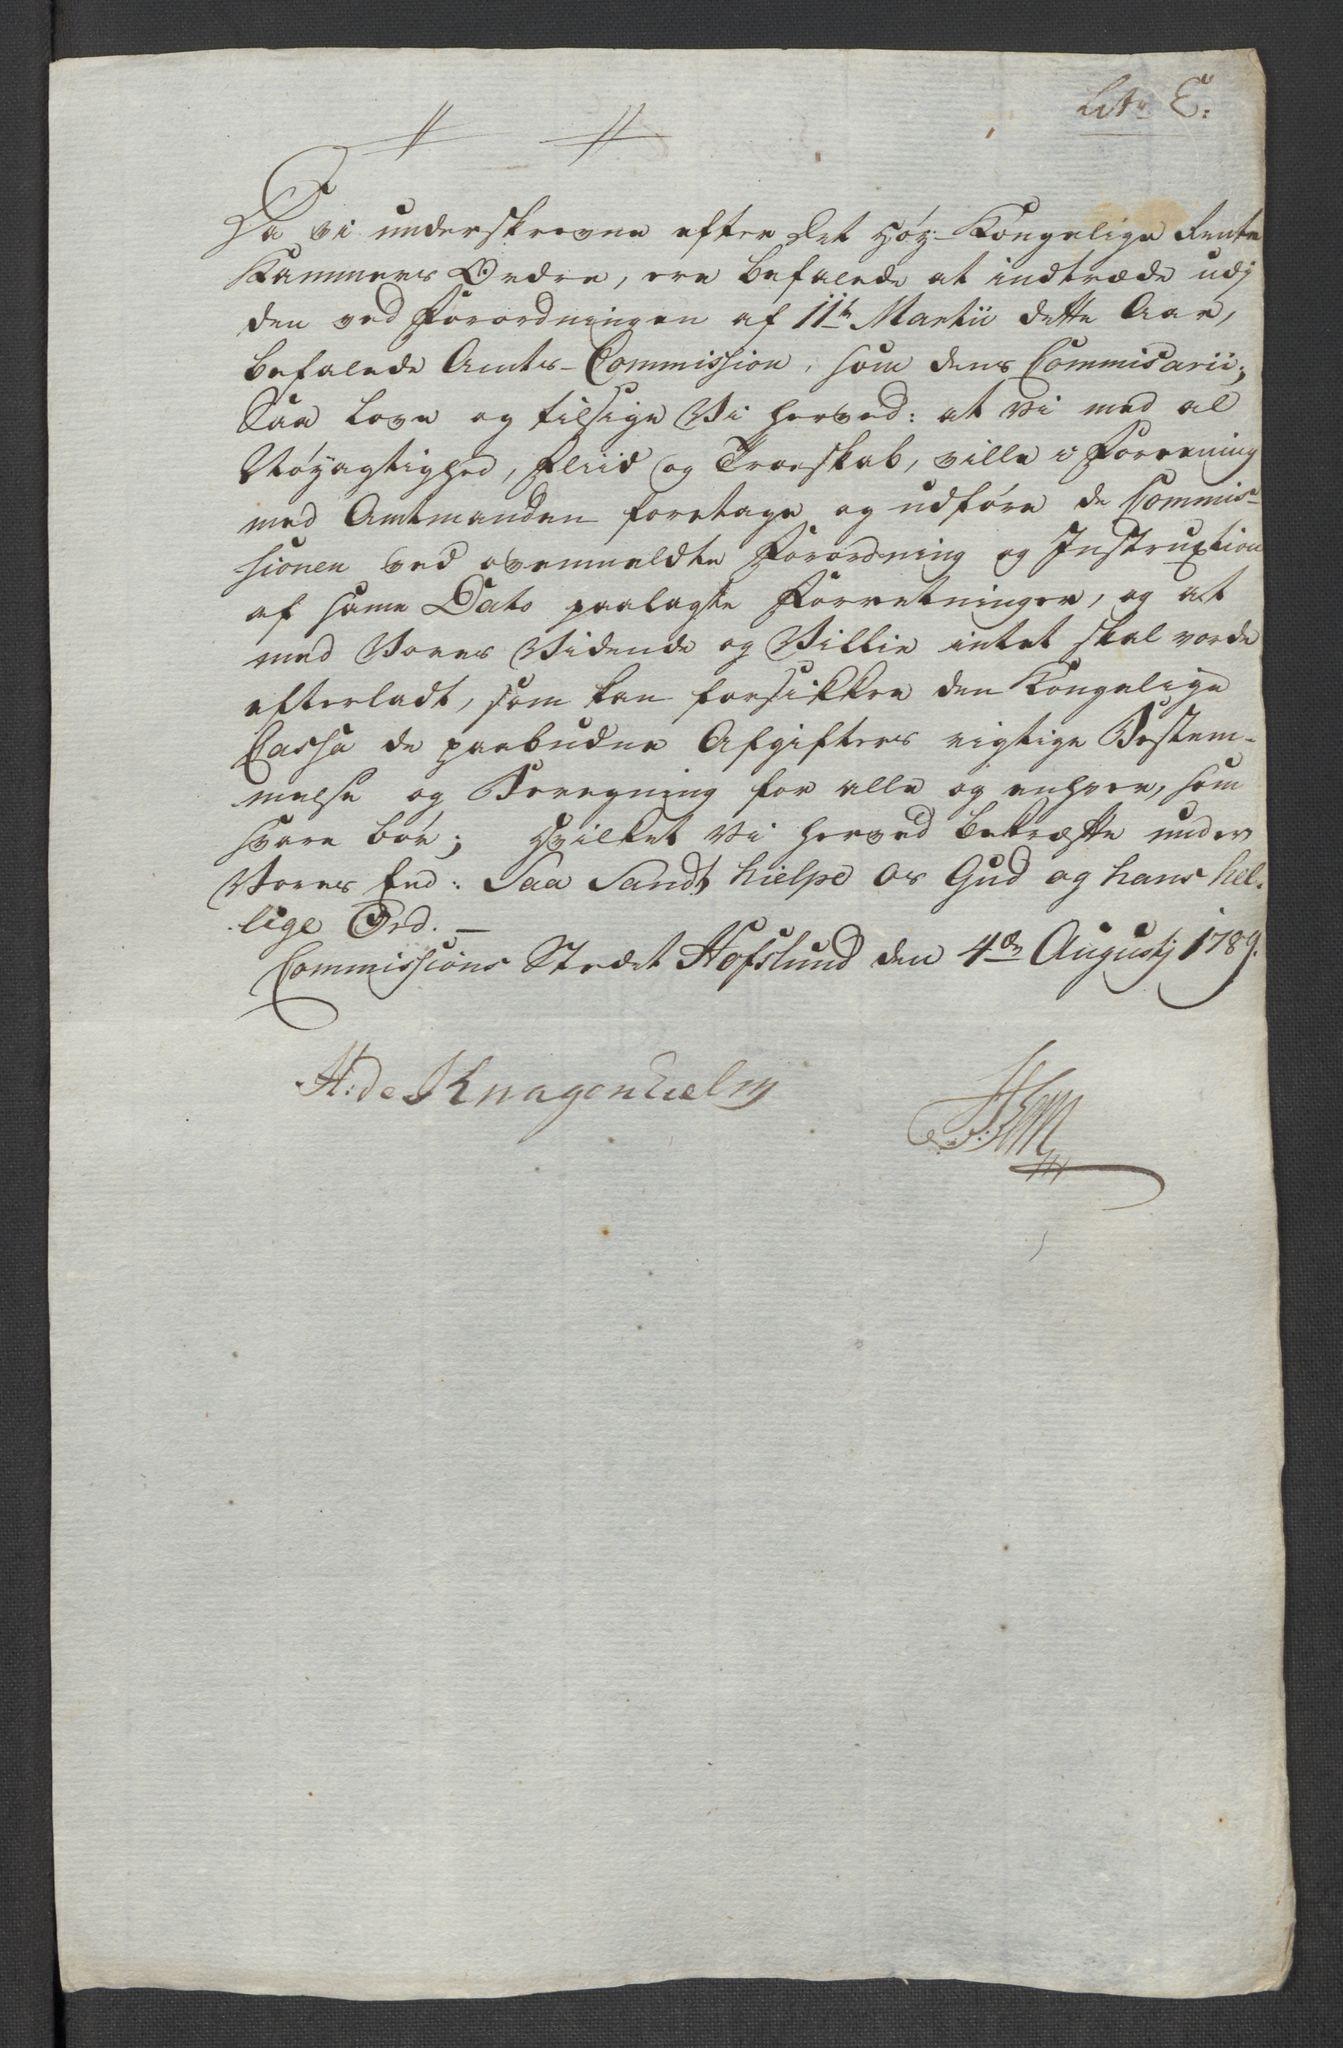 Litr E:
Da vi underskrevne efter Det Høy-Kongelige Rente
Kammers Ordre, ere befalede at indtræde udj
den ved Forordningen af 11te Martii dette Aar,
befalede Amts-Commission, som dens Commisarii;
Saa love og tilsige Vi herved: at vi med al
Nøyagtighed, Fliid og Troeskab, ville i Foreening
med Amtmanden foretage og udføre de Commis-
sionen ved ovenmeldte Forordning og Instruction
af samme Dato paalagte Forretninger, og at
med Vores Vidende og Villie intet skal vorde
efterladt, som kan forsikkre den Kongelige
Cassa de paabudne Afgifters rigtige Bestem-
melse og Beregning for alle og enhver, som
svare bør; hvilket Vi herved bekræfte under
Vores Eed: Saa Sandt hielpe os Gud og hans hel-
lige Ord. —
Commissions Stedet Hofslund den 4de Augustj 1789.
H: de Knagenhielm